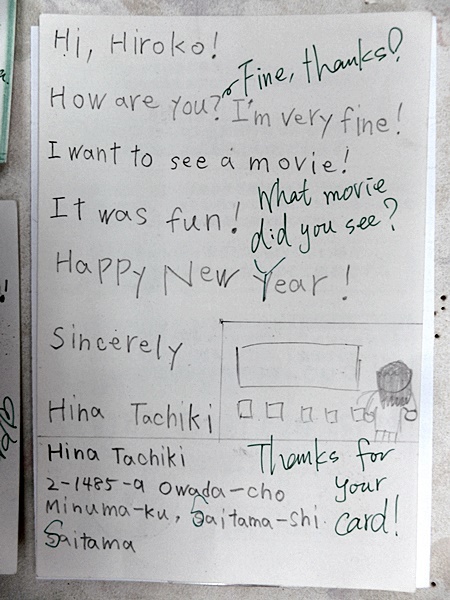 Hi, Hiroko!
Fine, thanks!
How are you? I'm very fine!
I want to see a movie!
It was fun!
What movie
did you see?
Happy New Year!
Sincerely
Hina Tachiki
Hina Tachiki
2-1485-a Owada-cho
Minuma-ku, Saitama-shi
Saitama
Thanks for
your
card!